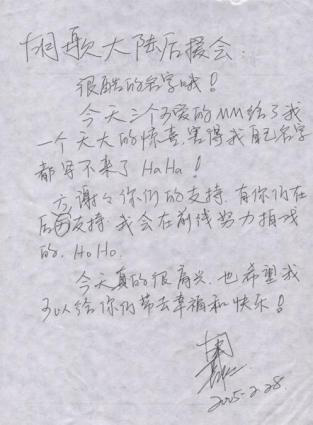 胡歌大陆后援会:
很酷的名字哦!
今天三个可爱的MM给了我
一个天大的惊喜,害得我自己名字
都写不来了HaHa!
方,谢谢你们的支持,有你们在
后面支持,我会在前线努力拍戏
的,HoHo.
今天真的很高兴,也希望我
可以给你们带去幸福和快乐!
胡歌
2005-2-28.